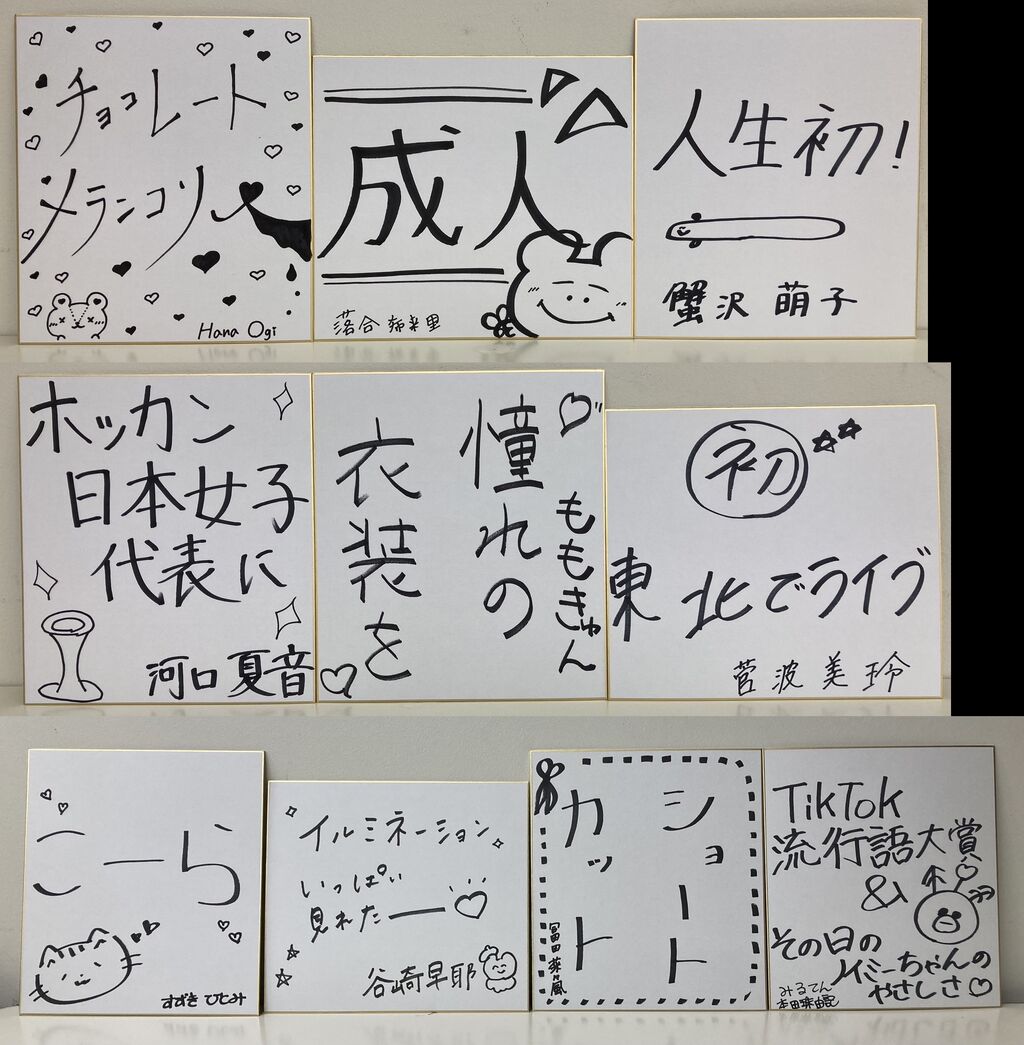 チョコレート
メランコリー
Hana Ogi
成人
落合 希来里
人生初!
蟹沢 萌子
ホッカン
日本女子
代表に
河口 夏音
ももきゅん
憧れの
衣装を
初
東北でライブ
菅波 美玲
こーら
すずき ひとみ
イルミネーション
いっぱい
見れたー
谷崎早耶
ショート
カット
冨田 菜々風
TikTok
流行語大賞
&
その日の
イミーちゃんの
やさしさ
みるてん
本田珠由記